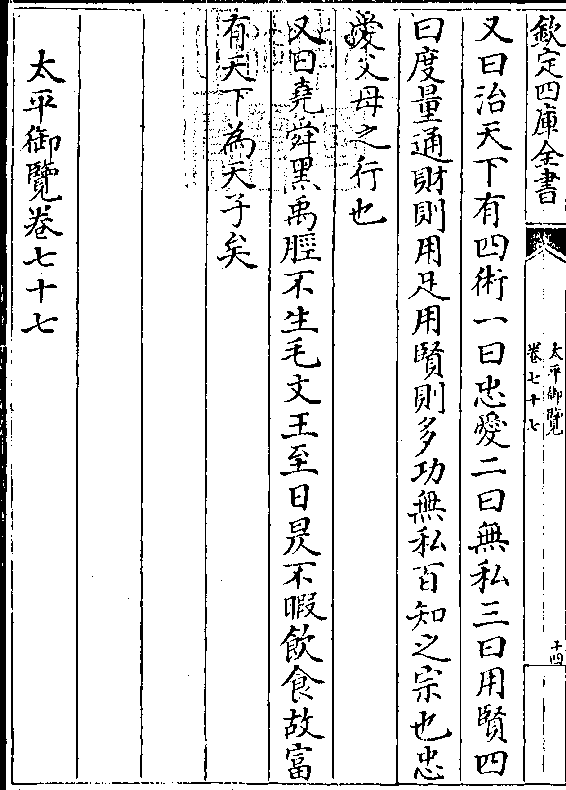 欽定四庫全書
太平御覽
卷七十七
十四
又曰治天下有四術一曰忠愛二曰無私三曰用賢四
曰度量通財則用足用賢則多功無私百知之宗也忠
愛父母之行也
又曰堯舜黑禹脛不生毛文王至日昃不暇飲食故富
有天下為天子矣
太平御覽卷七十七